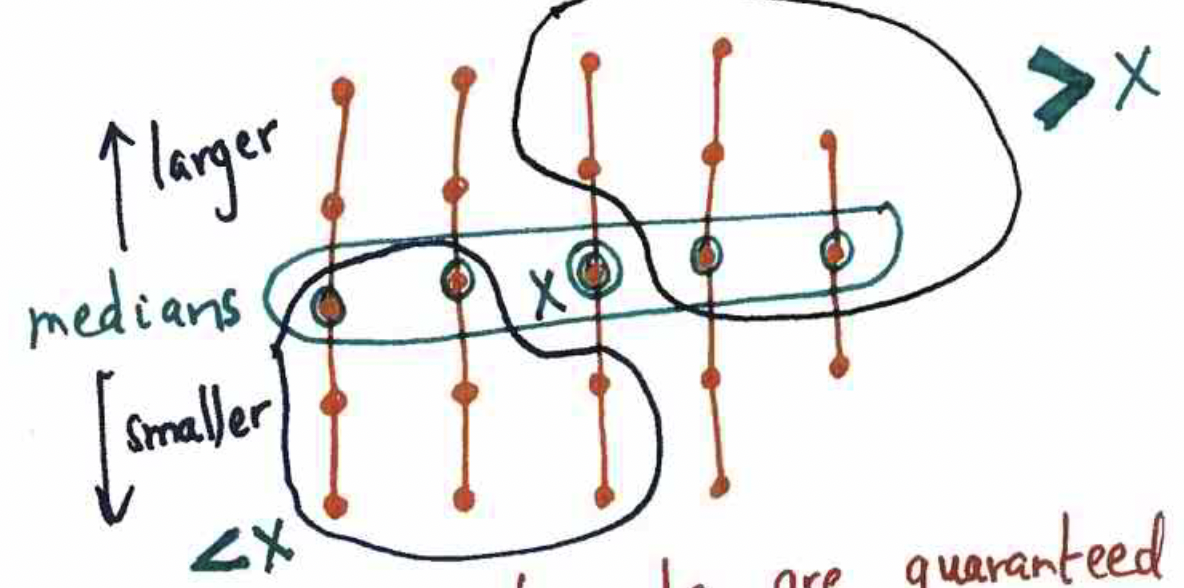 > X
larger
medians
X
smaller
< X
are guaranteed